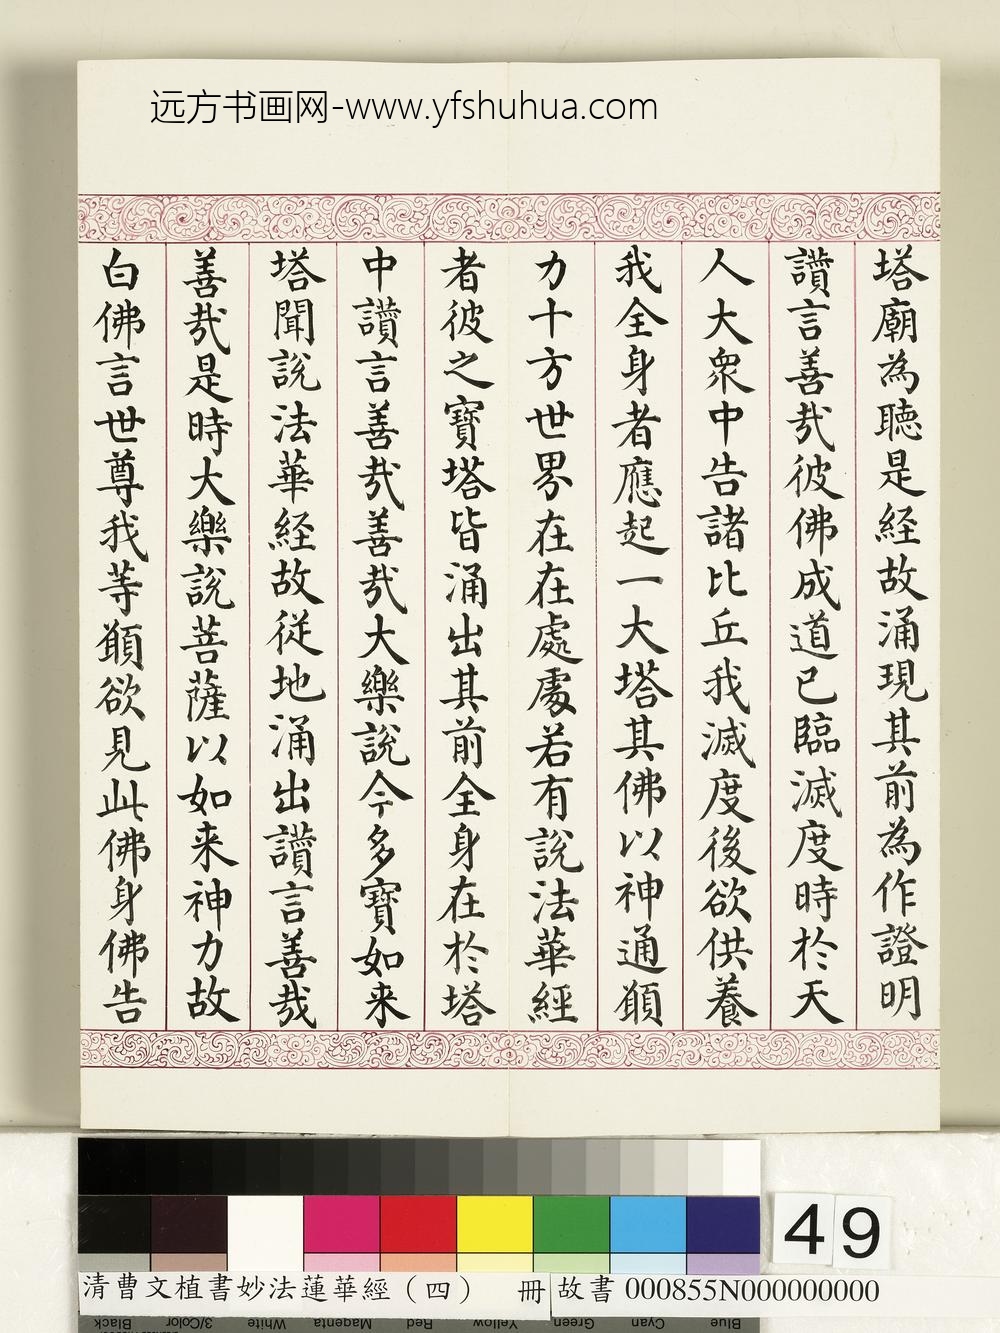 远方书画网-www.yfshuhua.com
塔廟為聽是經故涌現其前為作證明
讚言善哉彼佛成道已臨滅度時於天
人大衆中告諸比丘我滅度後欲供養
我全身者應起一大塔其佛以神通願
力十方世界在在處處若有說法華經
者彼之寶塔皆涌出其前全身在於塔
中讚言善哉善哉大樂說今多寶如来
塔聞說法華経故從地涌出讚言善哉
善哉是時大樂說菩薩以如来神力故
白佛言世尊我等願欲見此佛身佛告
49
清曹文植書妙法蓮華經（四） 冊
故書 000855N000000000
Black
3/Color
White
Magenta
Red
Yellow
Green
Cyan
Blue